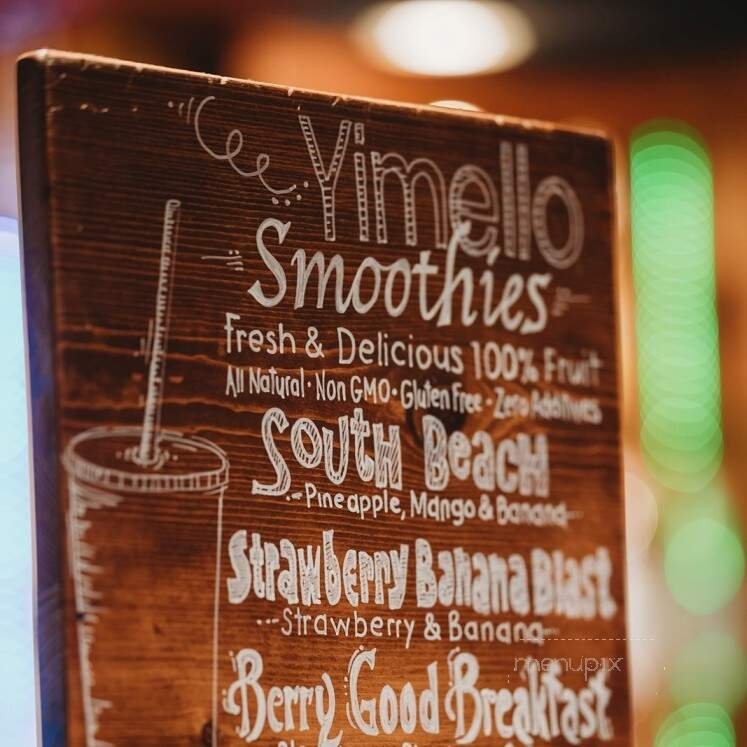 Yimello
Smoothies
Fresh & Delicious 100% Fruit
All Natural · Non GMO · Gluten Free · Zero Additives
South Beach
Pineapple, Mango & Banana
Strawberry Banana Blast
Strawberry & Banana
menupix
Berry Good Breakfast